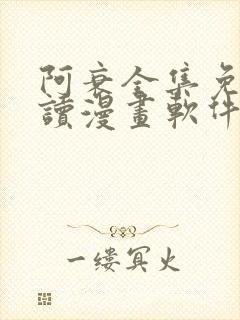 阿衰全集免
讀漫畫軟件
一缕冥火